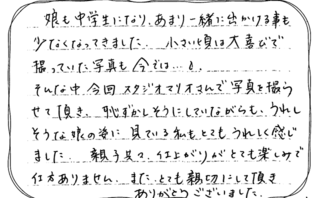 娘も中学生になり、あまり一緒に出かける事も
少なくなってきました。小さい頃は大喜びで
撮っていた写真も今では…。
そんな中今回スタジオマリオさんで写真を撮ら
せて頂き、恥ずかしそうにしていながらも、うれし
そうな娘の姿に見ている私もとてもうれしく感じ
ました。親子共々、仕上がりがとても楽しみで
仕方ありません。また、とても親切にして頂き
ありがとうございました。